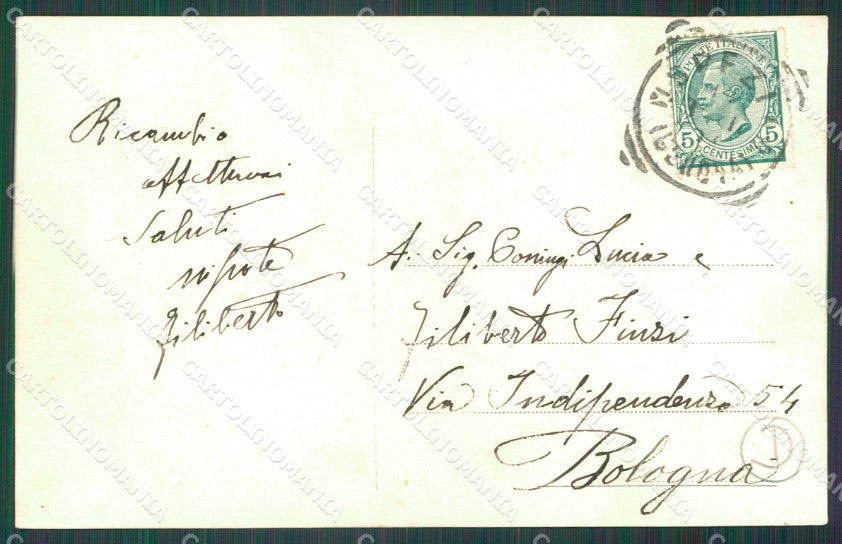 Ricambio
affettuosi
Saluti
nipote
Filiberto
POSTE ITALIANE
5 5
CENTESIMI
A. Sig. Coniugi Lucia e
Filiberto Finzi
Via Indipendenza 54
Bologna
CARTOLINOMANIA